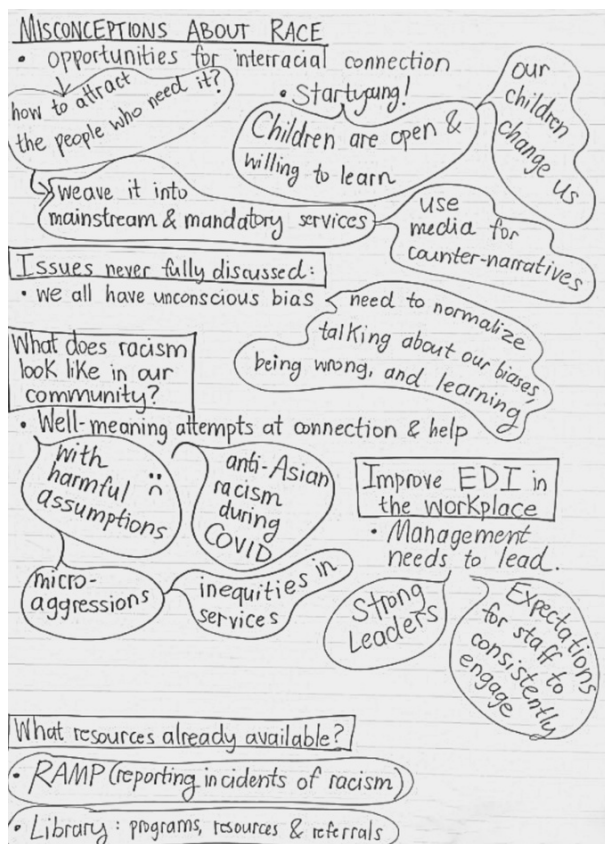 MISCONCEPTIONS ABOUT RACE
• opportunities for interracial connection
how to attract
the people who need it?
• Start young!
Children are open &
willing to learn
our
children
change us
weave it into
mainstream & mandatory services
use
media for
counter-narratives
Issues never fully discussed:
• we all have unconscious bias
need to normalize
talking about our biases,
being wrong, and learning
What does racism
look like in our
community?
• Well-meaning attempts at connection & help
with
harmful
assumptions
anti-Asian
racism
during
COVID
micro-
aggressions
inequities in
services
Improve EDI in
the workplace
• Management
needs to lead.
Strong
Leaders
Expectations
for staff to
consistently
engage
What resources already available?
• RAMP (reporting incidents of racism)
• Library: programs, resources & referrals